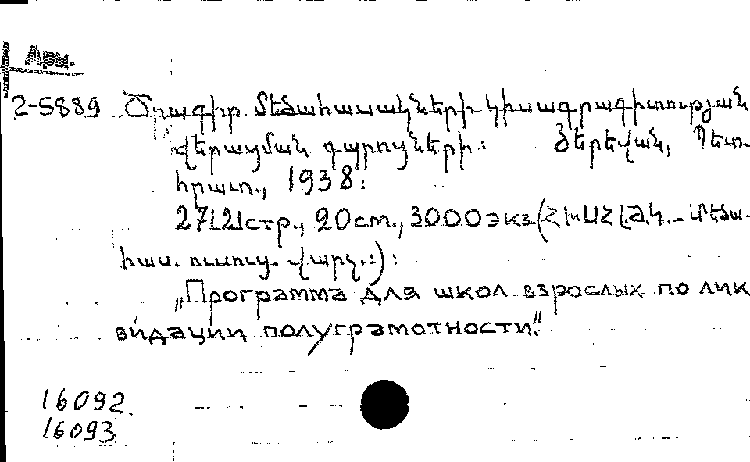 Арм.
2-5889 Ծրագիր մեծահասակների կիսագրագիտության
վերացման դպրոցների: Յերեվան, Պետ.
հրատ., 1938:
27[2]стр., 20см., 3000экз. (ՀԽՍՀ ԼԺԿ. – Մեծա-
հաս. ուսուց. վարչ.):
„Программа для школ взрослых по лик
видации полуграмотности."
16092.
16093